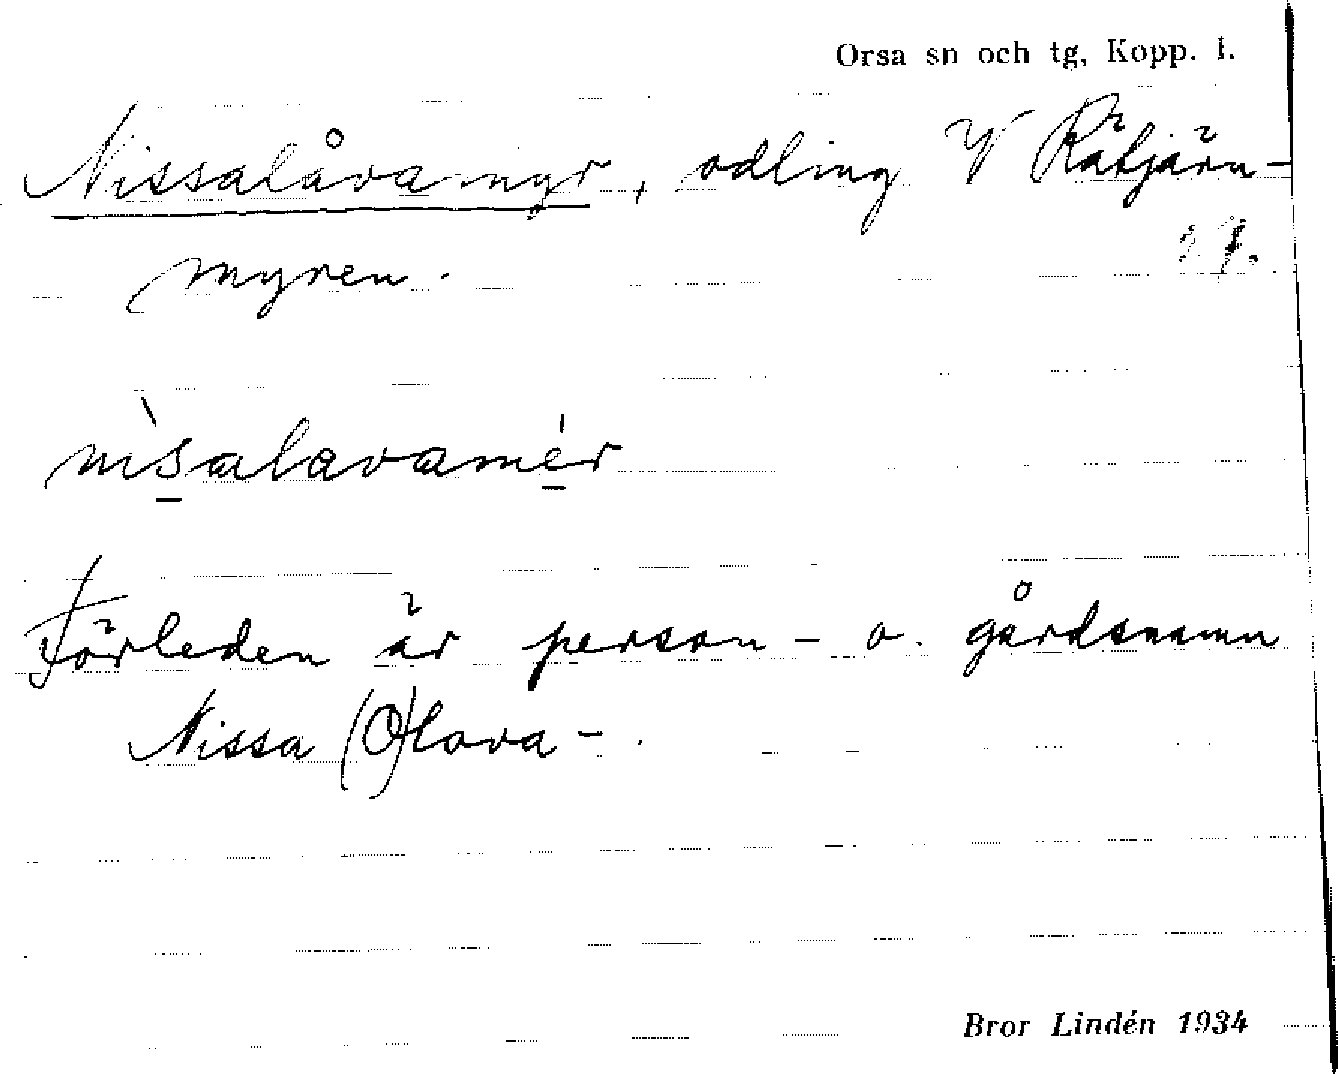 Orsa sn och tg, Kopp. l.
Nissalåvamyr, odling V Rätjärn-
myren.
nìsalavamér
Förleden är person- o. gårdsnamn
Nissa (O)lova-.
Bror Lindén 1934